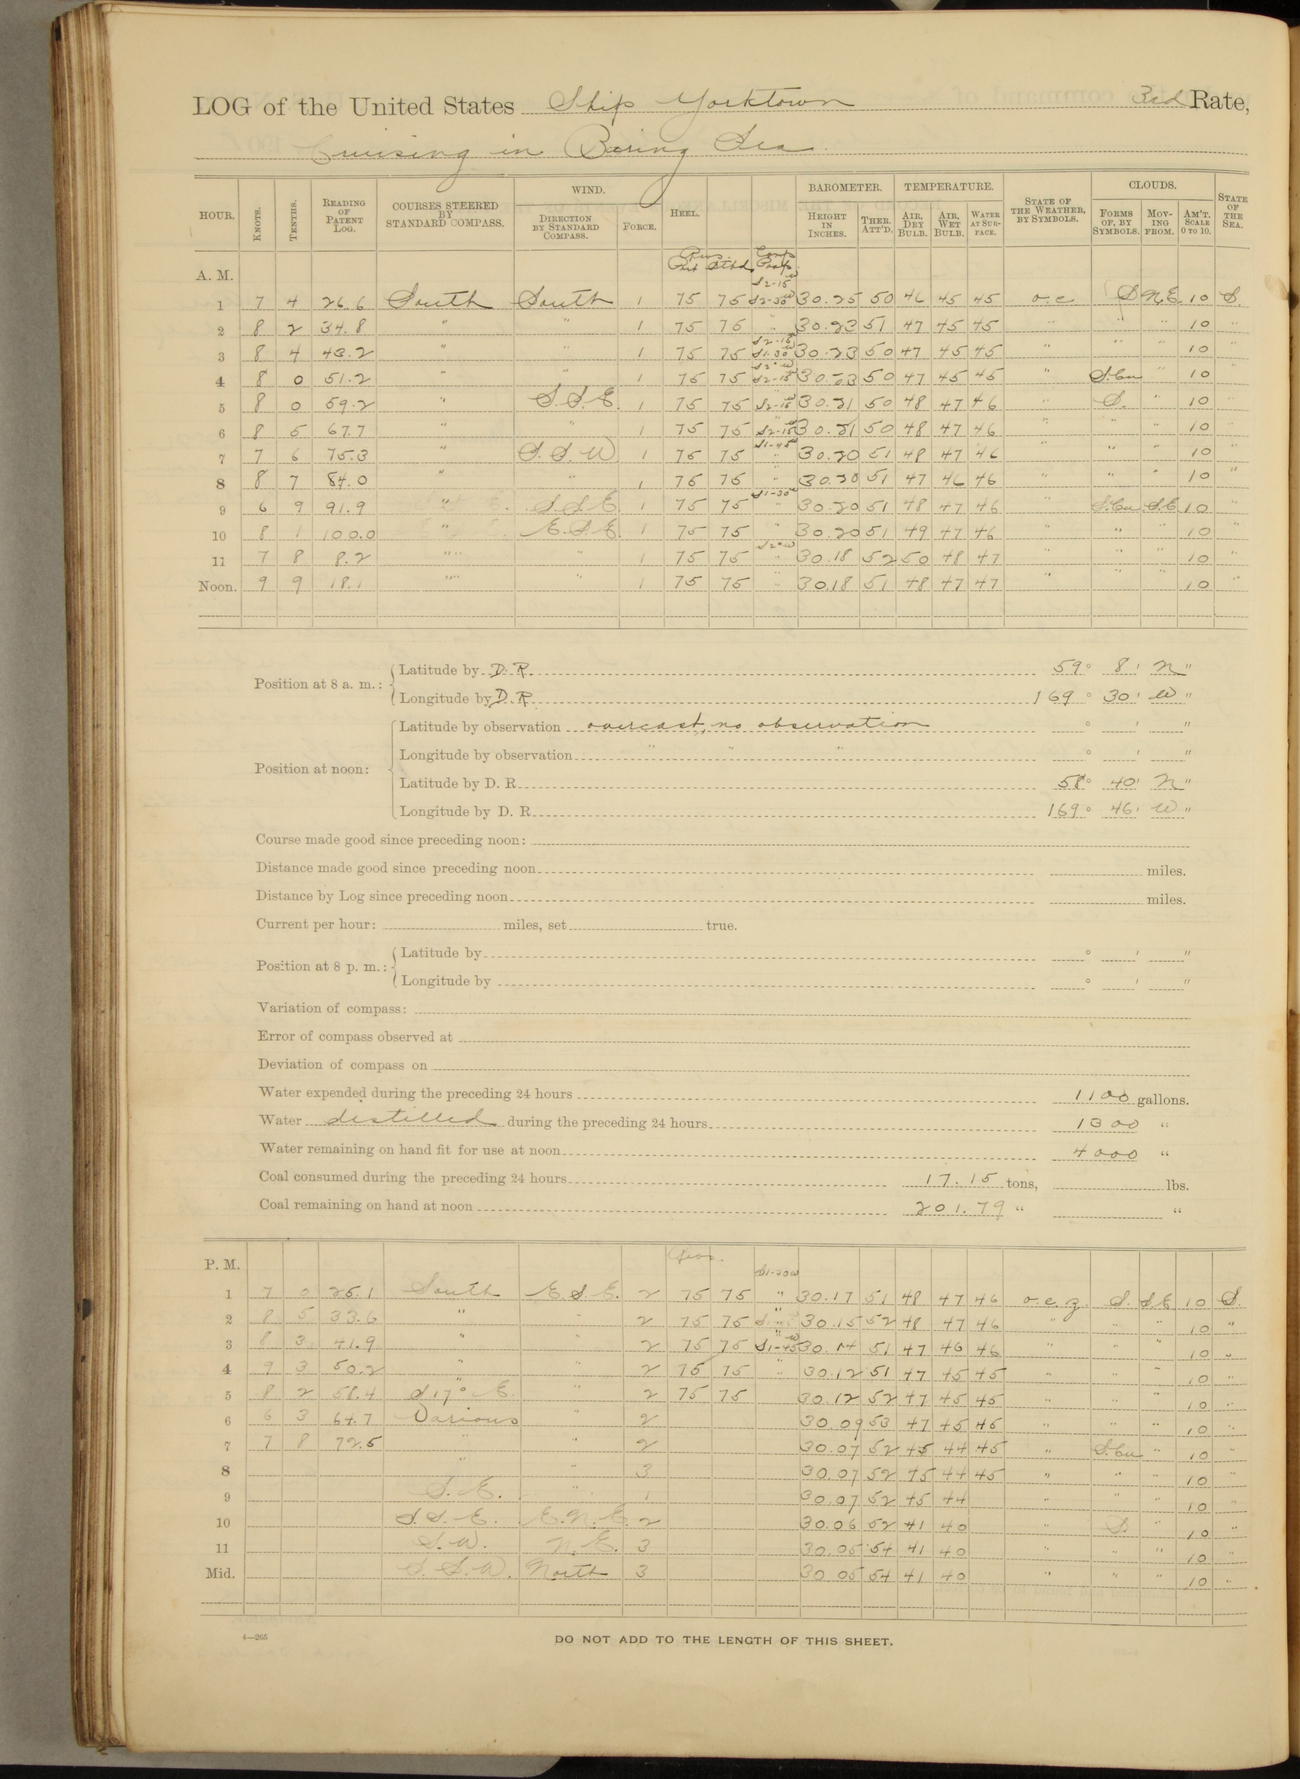 LOG of the United States Ship Yorktown 3rd Rate,
Cruising in Bering Sea
HOUR. KNOTS. TENTHS. READING OF PATENT LOG. COURSES STEERED BY STANDARD COMPASS. WIND. DIRECTION BY STANDARD COMPASS. FORCE. HEEL. BAROMETER. HEIGHT IN INCHES. THER. ATT'D. TEMPERATURE. AIR, DRY BULB. AIR, WET BULB. WATER AT SURFACE. STATE OF THE WEATHER, BY SYMBOLS. CLOUDS. FORMS OF, BY SYMBOLS. MOVING FROM. AM'T. SCALE 0 TO 10. STATE OF THE SEA.
A. M.
1 7 4 26.6 South South 1 75 75 S2-30W 30.25 50 46 45 45 o.c. S N.E. 10 S.
2 8 2 34.8 " " 1 75 76 " 30.23 51 47 45 45 " " " 10 "
3 8 4 43.2 " " 1 75 75 30.23 50 47 45 45 " " " 10 "
4 8 0 51.2 " " 1 76 75 S2-15 30.23 50 47 45 45 " S.Cu " 10 "
5 8 0 59.2 " S.S.E. 1 75 75 S2-15 30.21 50 48 47 46 " S. " 10 "
6 8 5 67.7 " " 1 75 75 S2-15 30.21 50 48 47 46 " " " 10 "
7 7 6 75.3 " S.S.W 1 76 75 " 30.20 51 48 47 46 " " " 10 "
8 8 7 84.0 " " 1 76 76 " 30.20 51 47 46 46 " " " 10 "
9 6 9 91.9 " S.S.E 1 75 75 " 30.20 51 48 47 46 " S.Cu S.E 10 "
10 8 1 100.0 " E.S.E 1 75 75 " 30.20 51 49 47 46 " " " 10 "
11 7 8 8.2 " " 1 75 75 " 30.18 52 50 48 47 " " " 10 "
Noon. 9 9 18.1 " " 1 75 75 " 30.18 51 48 47 47 " " " 10 "
Position at 8 a. m.: Latitude by D.R. 59° 8' N "
Longitude by D.R. 169° 30' W "
Position at noon: Latitude by observation overcast, no observation ° ' "
Longitude by observation " " " ° ' "
Latitude by D. R. 58° 40' N "
Longitude by D. R. 169° 46' W "
Course made good since preceding noon:
Distance made good since preceding noon miles.
Distance by Log since preceding noon miles.
Current per hour: miles, set true.
Position at 8 p. m.: Latitude by ° ' "
Longitude by ° ' "
Variation of compass:
Error of compass observed at
Deviation of compass on
Water expended during the preceding 24 hours 1100 gallons.
Water distilled during the preceding 24 hours 1300 "
Water remaining on hand fit for use at noon 4000 "
Coal consumed during the preceding 24 hours 17.15 tons, lbs.
Coal remaining on hand at noon 201.79 " "
P. M.
1 7 0 25.1 South E.S.E. 2 75 75 " 30.17 51 48 47 46 o.c.z. S. S.E 10 S.
2 8 5 33.6 " " 2 75 75 " 30.15 52 48 47 46 " " " 10 "
3 8 3 41.9 " " 2 75 75 S1-45 30.14 51 47 46 46 " " " 10 "
4 9 3 50.2 " " 2 75 75 " 30.12 51 47 45 45 " " " 10 "
5 8 2 58.4 S17°E. " 2 75 75 30.12 52 47 45 45 " " " 10 "
6 6 3 64.7 Various " 2 30.09 53 47 45 45 " " " 10 "
7 7 8 72.5 " " 2 30.07 52 45 44 45 " S.Cu " 10 "
8 " " 3 30.07 52 45 44 45 " " " 10 "
9 S.E. " 1 30.07 52 45 44 " " " 10 "
10 S.S.E. E.N.E. 2 30.06 52 41 40 " S. " 10 "
11 S.W. N.E. 3 30.05 54 41 40 " " " 10 "
Mid. S.S.W. North 3 30.05 54 41 40 " " " 10 "
4—265
DO NOT ADD TO THE LENGTH OF THIS SHEET.